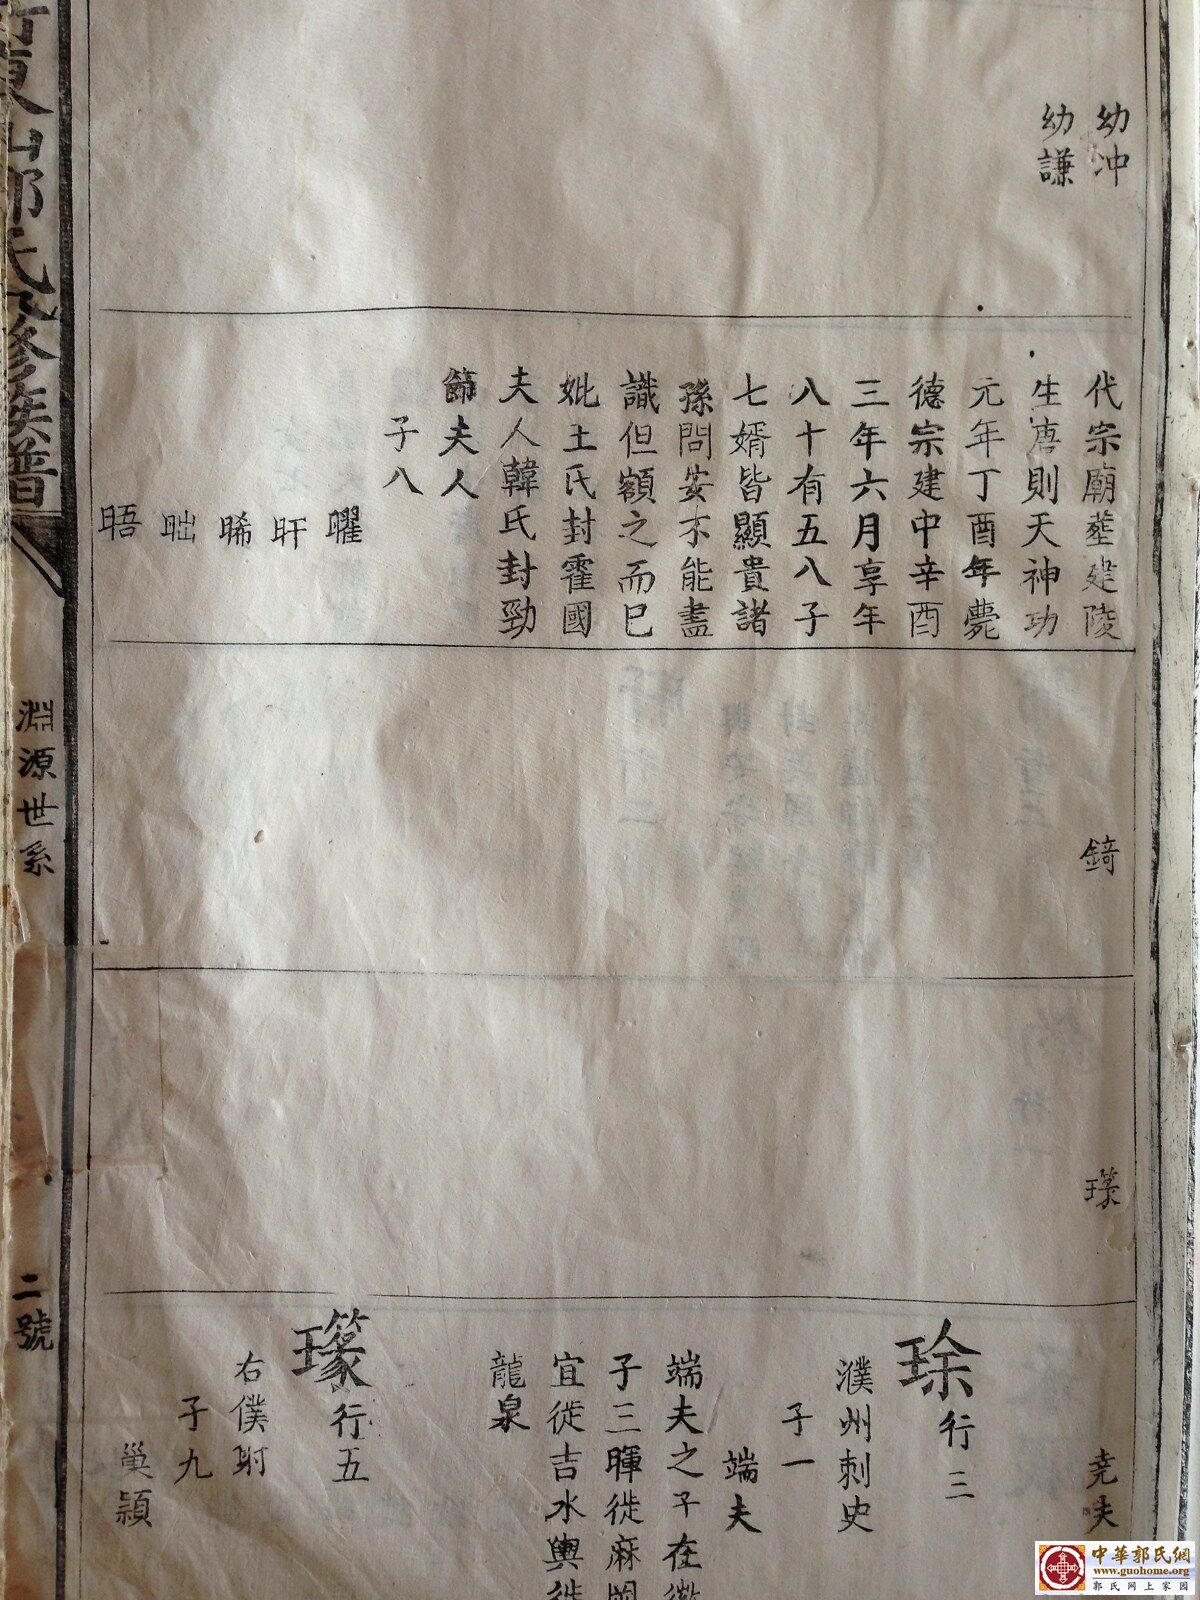 幼冲
幼謙
代宗廟塟建陵
生唐則天神功
元年丁酉年薨
德宗建中辛酉
三年六月享年
八十有五八子
七婿皆顯貴諸
孫問安不能盡
識但額之而已
妣王氏封霍國
夫人韓氏封勁
節夫人
子八
曜
旰
晞
昢
晤
錡
瑑
尧夫
琮行三
濮州刺史
子一
端夫
端夫之子在
子三暉徙麻岡
宜徙吉水輿徙
龍泉
行五
右僕射
子九
巢穎
東山郭氏修族譜
淵源世系
二號
中華郭氏網
www.guohome.org
郭氏网上家园